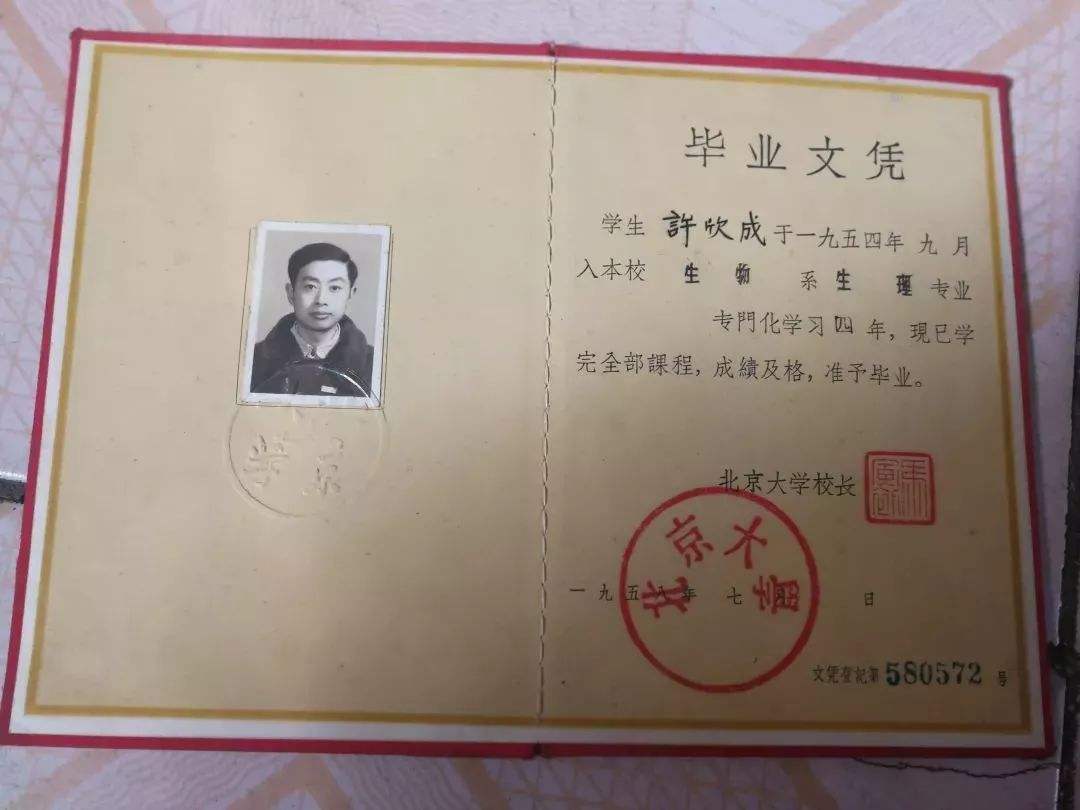 毕业文凭
学生 許欣成 于一九五四年 九 月
入本校 生 物 系 生 理 专业
专門化学习四年，現已学
完全部課程，成績及格，准予毕业。
北京大学校长
北京大學
一九五八年 七 月 日
文凭登記第 580572 号